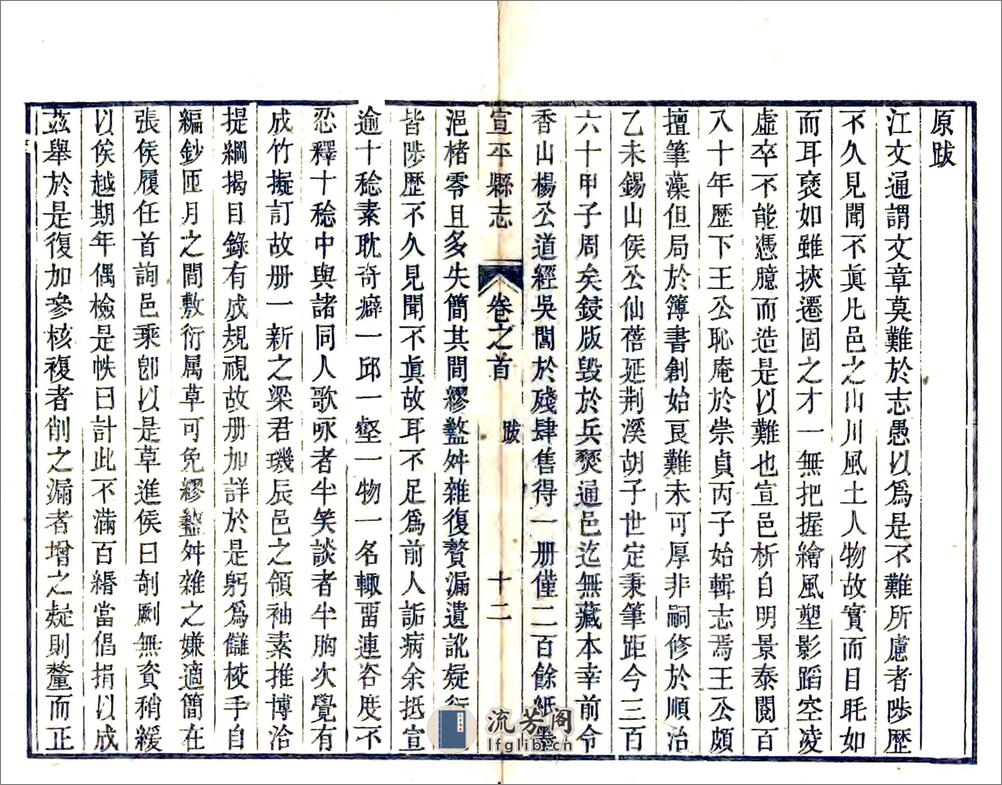 原跋
江文通謂文章莫難於志愚以爲是不難所慮者陟歷
不久見聞不眞凡邑之山川風土人物故實而目眊如
而耳褎如雖挾遷固之才一無把握繪風塑影蹈空凌
虛卒不能憑臆而造是以難也宣邑析自明景泰閱百
八十年歷下王公恥庵於崇貞丙子始輯志焉王公頗
擅筆藻但局於簿書創始良難未可厚非嗣修於順治
乙未錫山侯公仙蓓延荆溪胡子世定秉筆距今三百
六十甲子周矣鋟版毀於兵燹通邑迄無藏本幸前令
香山楊公道經吳閶於殘肆售得一册僅二百餘紙墨
宣平縣志 卷之首 跋 十二
浥楮零且多失簡其間繆盭舛雜復贅漏遺訛疑衍
皆陟歷不久見聞不眞故耳不足爲前人詬病余抵宣
逾十稔素耽奇癖一邱一壑一物一名輙畱連咨度不
忍釋十稔中與諸同人歌咏者半笑談者半胸次覺有
成竹擬訂故册一新之梁君璣辰邑之領袖素推博洽
提綱揭目錄有成規視故册加詳於是躬爲讎校手自
編鈔匝月之間敷衍属草可免繆盭舛雜之嫌適簡在
張侯履任首詢邑乘卽以是草進侯曰剞劂無資稍緩
以俟越期年偶檢是帙曰計此不滿百緡當倡捐以成
茲舉於是復加參核複者削之漏者增之疑則釐而正
流芳阁
lfglib.cn